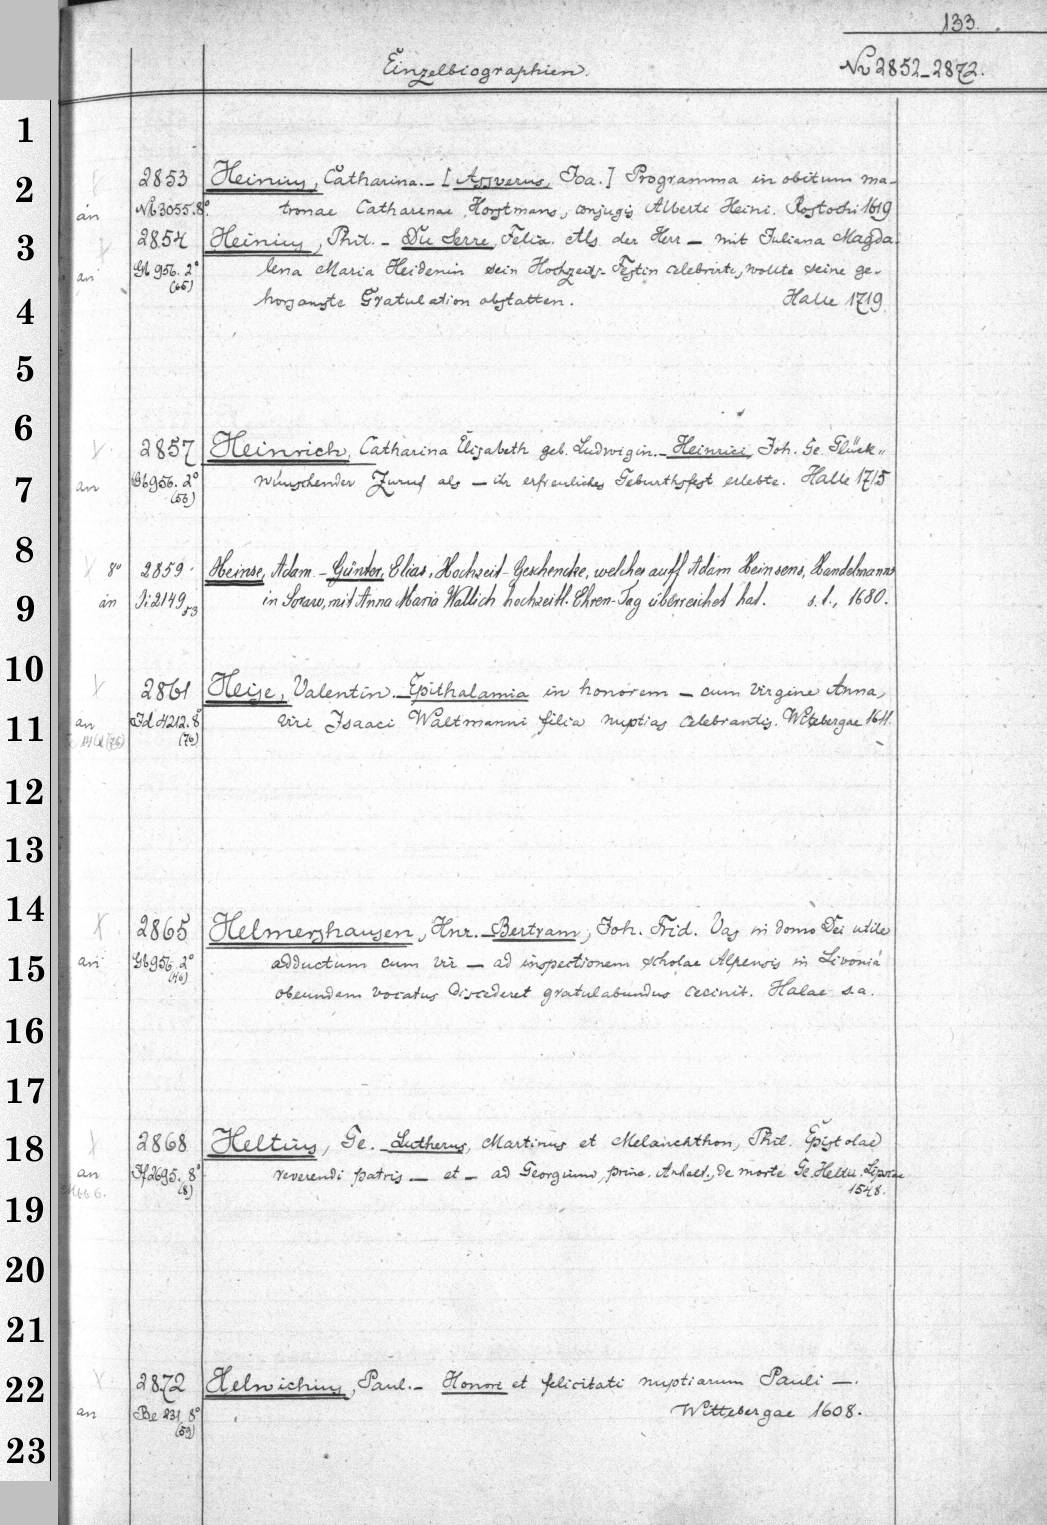 133.
Einzelbiographien.
№ 2852-2872.
1
2
3
4
5
6
7
8
9
10
11
12
13
14
15
16
17
18
19
20
21
22
23
2853 Heinius, Catharina. - [Assverus, Joa.] Programma in obitum ma-
an Nb 3055. 8°. tronae Catharinae Horstmans, conjugis Alberti Heini. Rostochi 1619
2854 Heinius, Phil. - Du Serre, Felix. Als der Herr - mit Juliana Magda-
an Gb 956. 2° lena Maria Heidenin sein Hochzeits-Festin celebrirte, wollte seine ge-
(65) horsamste Gratulation abstatten. Halle 1719
2857 Heinrich, Catharina Elisabeth geb. Ludwigin. - Heinrici, Joh. Ge. Glück-
an Gb 956. 2° wünschender Zuruf als - ihr erfreuliches Geburthsfest erlebte. Halle 1715
(56)
8° 2859 Heinse, Adam. - Günter, Elias, Hochzeit-Geschencke, welches auff Adam Heinsens, Handelmanns
an Ji 2149 53 in Soraw, mit Anna Maria Wallich hochzeitl. Ehren-Tag überreichet hat. s. l., 1680.
2861 Heise, Valentin. - Epithalamia in honorem - cum virgine Anna,
an Id 4212. 8° viri Isaaci Waltmanni filia nuptias celebrantis. Witebergae 1611.
(76)
2865 Helmershausen, Hnr. - Bertram, Joh. Frid. Vas in domo Dei utile
an Gb 956. 2° adductum cum vir - ad inspectionem scholae Alpensis in Livonia
(40) obeundam vocatus discederet gratulabundus cecinit. Halae s.a.
2868 Heltus, Ge. - Lutherus, Martinus et Melanchthon, Phil. Epistolae
an If 2695. 8° reverendi patris - et - ad Georgium, princ. Anhalt., de morte Ge. Heltii. Lipsiae
(8) 1548.
2872 Helwichius, Paul. - Honori et felicitati nuptiarum Pauli -.
an Be 231. 8° Wittebergae 1608.
(59)